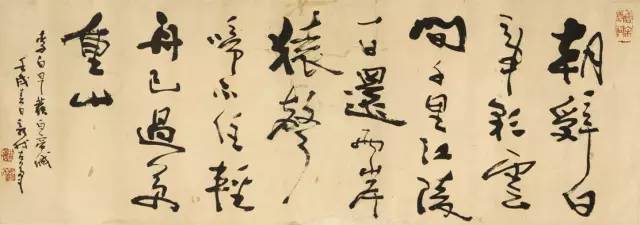 朝辭白
帝彩雲
間千里江陵
一日還兩岸
猿聲
啼不住輕
舟已過萬
重山
李白早發白帝城
壬戌春日